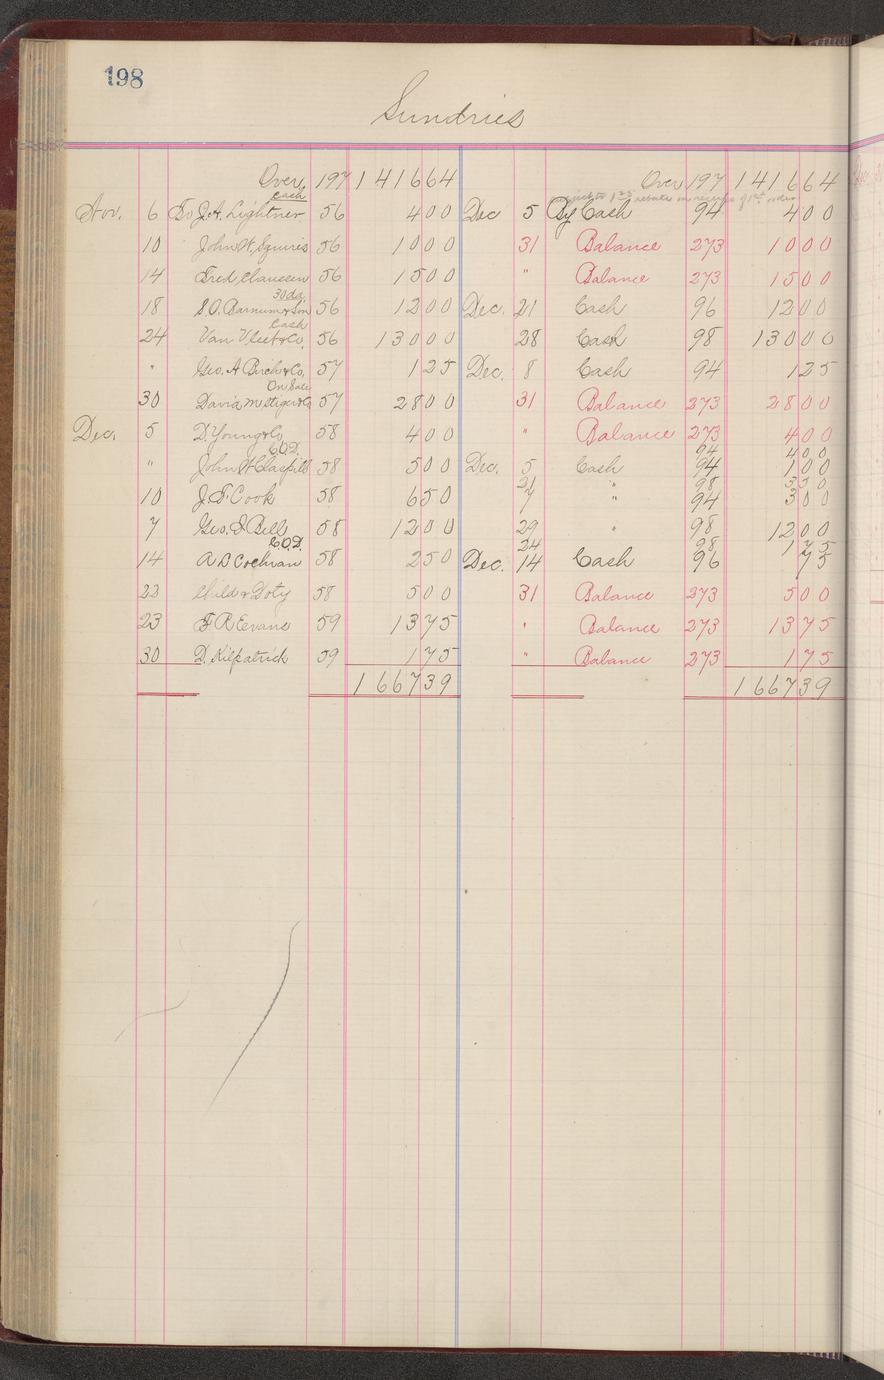 198
Sundries
Over 197 1416 64 Over 197 1416 64
Cash rebate
Nov. 6 To J. A. Lightner 56 4 00 Dec 5 By Cash 94 4 00
10 John W. Squires 56 10 00 31 Balance 273 10 00
14 Fred Claussen 56 15 00 " Balance 273 15 00
30 da.
18 S. O. Barnum & Son 56 12 00 Dec. 21 Cash 96 12 00
Cash
24 Van Vleet & Co. 56 130 00 28 Cash 98 130 00
" Geo. A Birch & Co. 57 1 25 Dec. 8 Cash 94 1 25
On Sale
30 David 57 28 00 31 Balance 273 28 00
Dec. 5 D. Young & Co 58 4 00 " Balance 273 4 00
C.O.D. 94 4 00
" John H 58 5 00 Dec. 5 Cash 94 1 00
21 " 98 3 50
10 J. T. Cook 58 6 50 7 " 94 3 00
7 Geo. S. Bells 58 12 00 29 " 98 12 00
C.O.D. 24 98 1 75
14 A D Cochran 58 2 50 Dec. 14 Cash 96 75
22 Child & Doty 58 5 00 31 Balance 273 5 00
23 F R Eevans 59 13 75 " Balance 273 13 75
30 D. Kilpatrick 59 1 75 " Balance 273 1 75
1667 39 1667 39